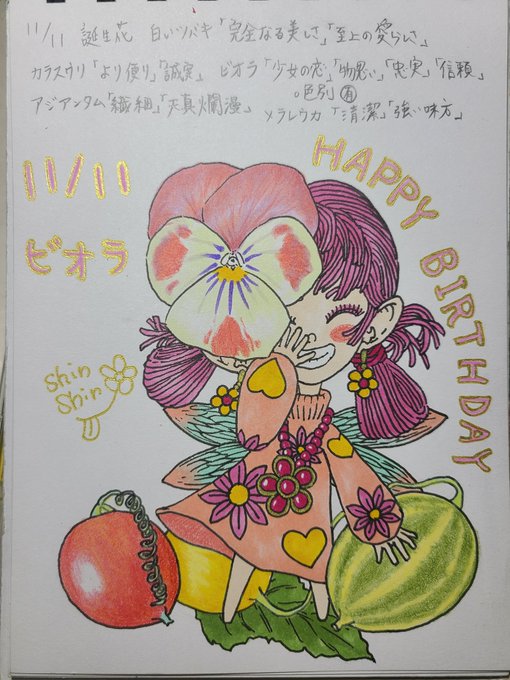 11/11 誕生花 白いツバキ「完全なる美しさ」「至上の愛らしさ」
カラスウリ「より便り」「誠実」 ビオラ「少女の恋」「物思い」「忠実」「信頼」
○色別㊒
アジアンタム「繊細」「天真爛漫」 メラレウカ「清潔」「強い味方」
11/11
ビオラ
HAPPY BIRTHDAY
Shin
Shin